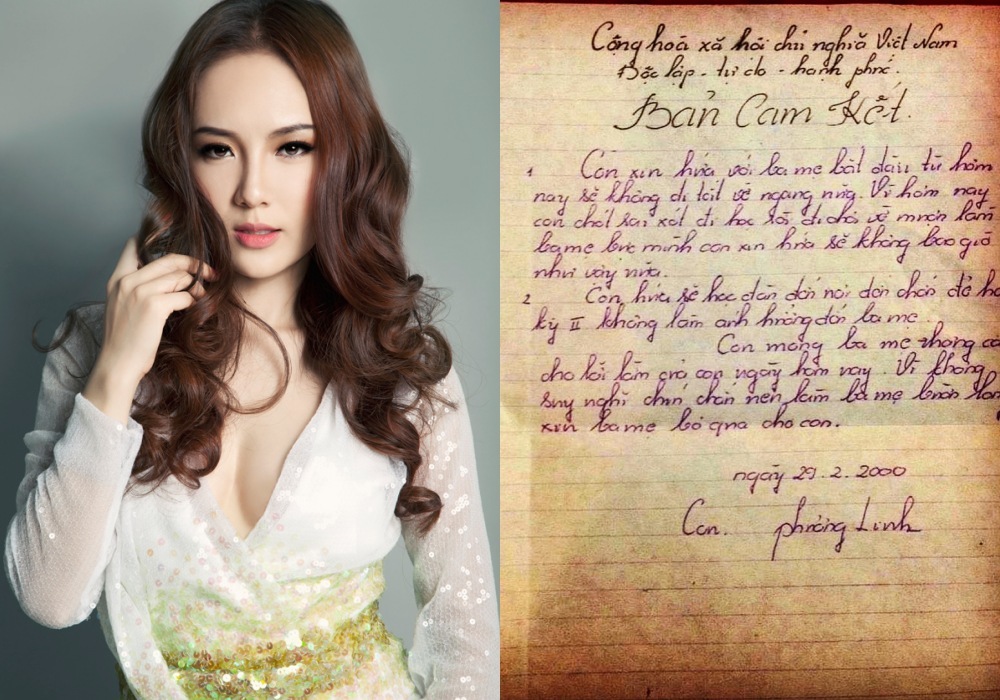 Cộng hoà xã hội chủ nghĩa Việt Nam
Độc lập - tự do - hạnh phúc.
Bản Cam Kết.
1 Con xin hứa với ba mẹ bắt đầu từ hôm
nay sẽ không đi tắt về ngang nữa. Vì hôm nay
con chót sai xót đi học rồi đi chơi về muộn làm
ba mẹ bực mình con xin hứa sẽ không bao giờ
như vậy nữa.
2 Con hứa sẽ học đến nơi đến chốn để họ
kỳ II không làm ảnh hưởng đến ba mẹ.
Con mong ba mẹ thông cả
cho lỗi lầm của con ngày hôm nay. Vì không
suy nghĩ chín chắn nên làm ba mẹ buồn lòn
xin ba mẹ bỏ qua cho con.
ngày 29.2.2000
Con. phương Linh